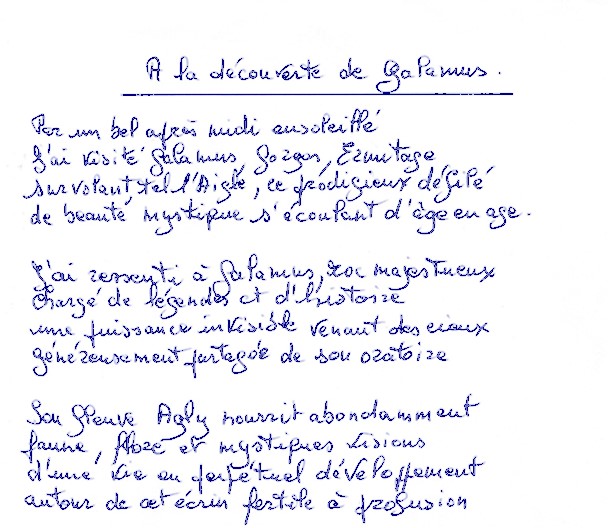 A la découverte de Galamus.
Par un bel après midi ensoleillé
J'ai visité Galamus, Gorges, Ermitage
survolant tel l'Aigle, ce prodigieux défilé
de beauté mystique s'écoulant d'âge en age.
J'ai ressenti à Galamus, roc majestueux
chargé de légendes et d'histoire
une puissance invisible venant des cieux
généreusement partagée de son oratoire
Son fleuve Agly nourrit abondamment
faune, flore et mystiques visions
d'une vie en perpétuel développement
autour de cet écrin fertile à profusion